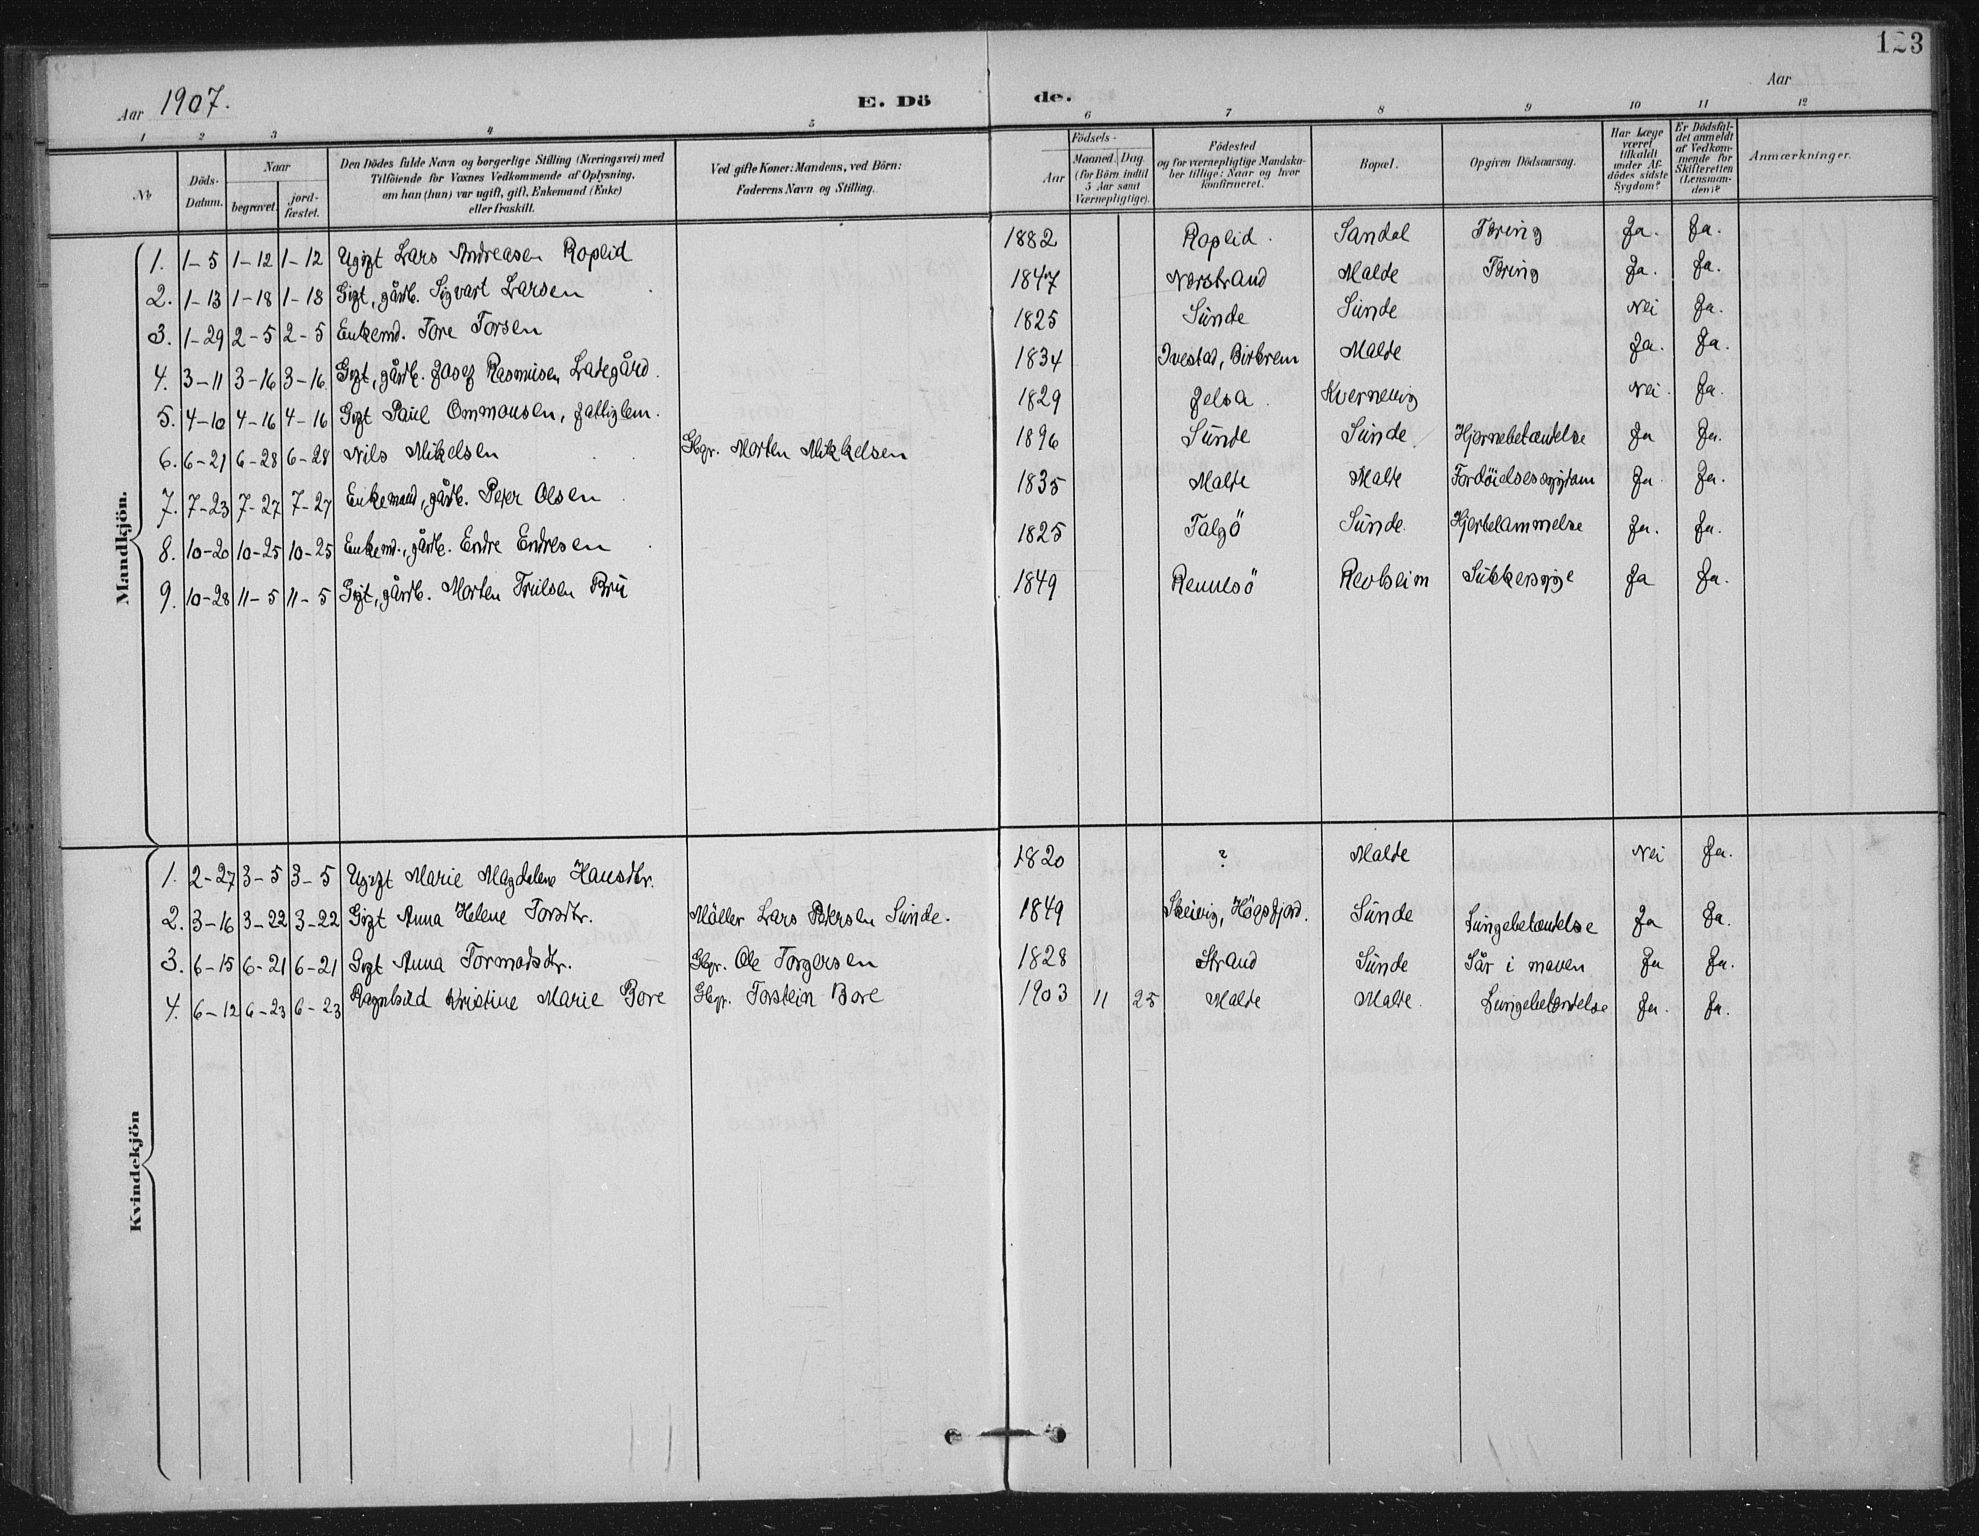 123
Aar 1907.
E. Dö
de.
Aar
1 2 3 4 5 6 7 8 9 10 11 12
No
Döds-Datum.
Naar
begravet.
jord-fæstet.
Den Dödes fulde Navn og borgerlige Stilling (Næringsvei) med
Tilföiende for Voxnes Vedkommende af Oplysning,
om han (hun) var ugift, gift, Enkemand (Enke)
eller fraskilt.
Ved gifte Koner: Mandens, ved Börn:
Faderens Navn og Stilling.
Födsels-
Aar
Maaned. Dag.
(for Börn indtil
5 Aar samt
Værnepligtige).
Födested
og for værnepligtige Mandskaber tillige: Naar og hvor
konfirmeret.
Bopæl.
Opgiven Dödsaarsag.
Har Læge
været
tilkaldt
under Afdödes sidste
Sygdom?
Er Dödsfaldet anmeldt
af Vedkommende for
Skifteretten
(Lensmanden)?
Anmærkninger.
Mandkjön.
1. 1-5 1-12 1-12 Ugift Lars Andreasen Roplid 1882 Roplid. Sandal Tæring Ja. Ja.
2. 1-13 1-18 1-18 Gift, gårdb. Sigvart Larsen 1847 Norstrand Malde Tæring Ja. Ja.
3. 1-29 2-5 2-5 Enkemd. Tore Torsen 1825 Sunde Sunde Nei Ja.
4. 3-11 3-16 3-16 Gift, gårdb. Josef Rasmusen Ladegård. 1834 Ivestad, Birkrem Malde Ja. Ja.
5. 4-10 4-16 4-16 Gift Paul Ommonsen, fattiglem. 1829 Jelsa. Kvernevig Nei. Ja.
6. 6-21 6-28 6-28 Nils Mikelsen Gbgr. Morten Mikkelsen 1896 Sunde Sunde Hjernebetændelse Ja Ja.
7. 7-23 7-27 7-27 Enkemand, gårdb. Peter Olsen 1835 Malde Malde Fordöielsessygdom Ja Ja.
8. 10-20 10-25 10-25 Enkemd., gårdb. Endre Endresen 1825 Talgö Sunde. Hjertelammelse Ja. Ja.
9. 10-28 11-5 11-5 Gift, gårdb. Morten Trulsen Bru 1849 Rennesö Revheim Sukkersyge Ja Ja.
Kvindekjön
1. 2-27 3-5 3-5 Ugift Marie Magdalene Hansdtr. 1820 ? Malde Nei Ja.
2. 3-16 3-22 3-22 Gift Anna Helene Torsdtr. Möller Lars Petersen Sunde. 1849 Høgsfjord. Sunde Lungebetændelse Ja Ja.
3. 6-15 6-21 6-21 Gift Anna Tormodsdtr. Gbgr. Ole Torgersen 1828 Strand Sunde Sår i maven Ja Ja.
4. 6-12 6-23 6-23 Ragnhild Kristine Marie Bore Gbgr. Torstein Bore 1903 11 25 Malde Malde. Lungebetændelse Ja. Ja.